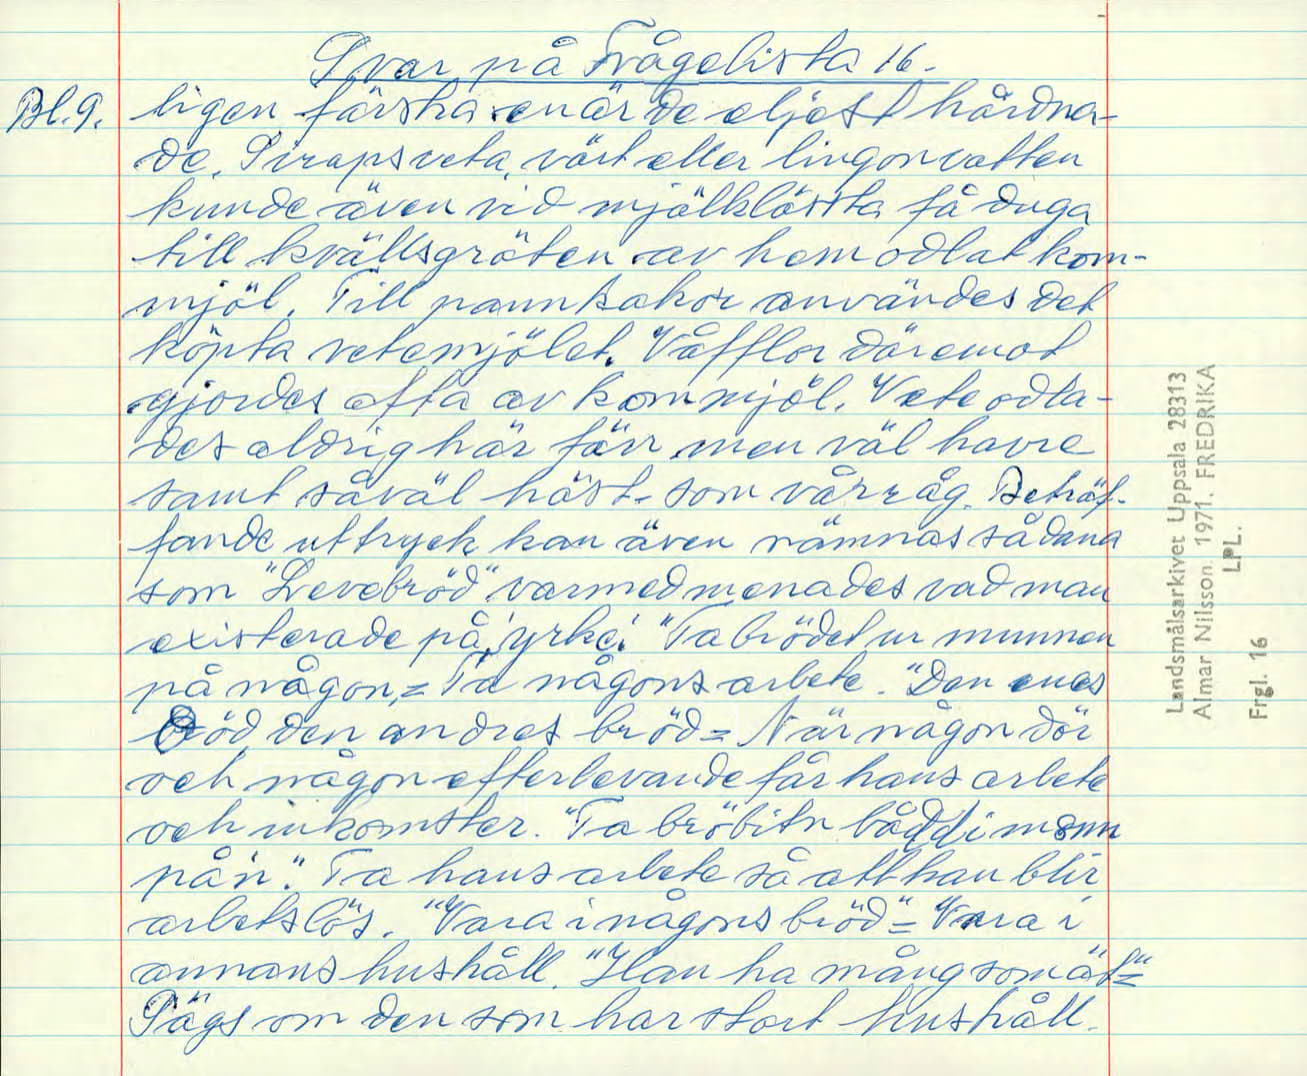 Svar på Frågelista 16.
Bl.9. ligen färska enär de eljest hårdna-
de. Sirapsveta, vört eller lingonvatten
kunde även vid mjölklösta få duga
till kvällsgröten av hemodlat korn-
mjöl. Till pannkakor användes det
köpta vetemjölet. Våfflor däremot
gjordes ofta av kornmjöl. Vete odla-
des aldrig här förr men väl havre
samt såväl höst- som vårråg. Beträf-
fande uttryck kan även nämnas sådana
som "Levebröd" varmed menades vad man
existerade på, yrke. "Ta brödet ur munnen
på någon,= Ta någons arbete. "Den enes
död den andres bröd= När någon dör
och någon efterlevande får hans arbete
och inkomster. "Ta bröbitn båddi munn
på'n". Ta hans arbete så att han blir
arbetslös. "Vara i någons bröd"= Vara i
annans hushåll. "Han ha mång som ät"=
Sägs om den som har stort hushåll.
Landsmålsarkivet Uppsala 28313
Almar Nilsson. 1971. FREDRIKA
LPL.
Frgl. 16